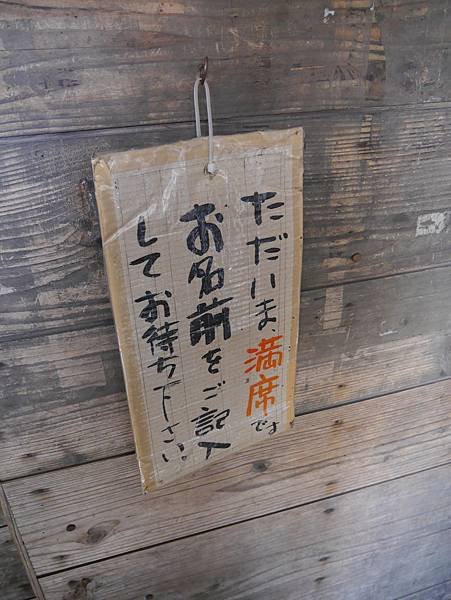 ただいま、満席です
お名前をご記入
してお待ち下さい